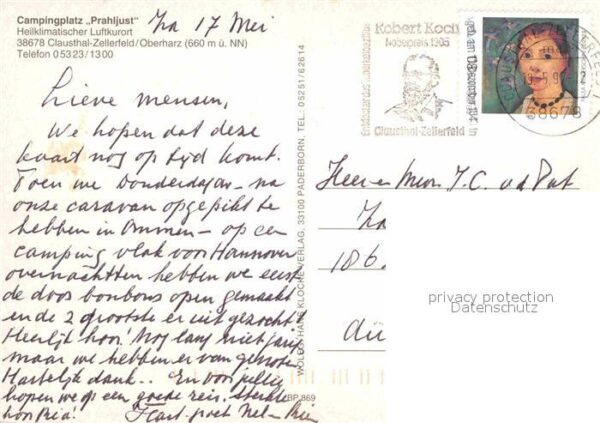 Campingplatz „Prahljust“
Heilklimatischer Luftkurort
38678 Clausthal-Zellerfeld/Oberharz (660 m ü. NN)
Telefon 05323/1300
Za 17 Mei
Lieve mensen,
We hopen dat deze
kaart nog op tijd komt.
Toen we Donderdag - na
onze caravan opgepikt te
hebben in Ommen - op een
camping vlak voor Hannover
overnachtten hebben we eerst
de doos bonbons open gemaakt
en de 2 grootste er uit gezocht!
Heerlijk hoor! Nog lang niet jarig
maar we hebben er van genoten
Hartelijk dank.. En voor jullie
hopen we op een goede reis. Sterkte
hoor Ria! Hart. groet Nel -
WOLFGANG HANS KLOCKE VERLAG, 33100 PADERBORN, TEL. 05251/62614
BP 869
Robert Koch
Nobelpreis 1905
Entdecker des
geb. am 11. Dezember 1843 in
Clausthal-Zellerfeld
38678
Heer en Mevr. J.C. v.d. Put
186
privacy protection
Datenschutz